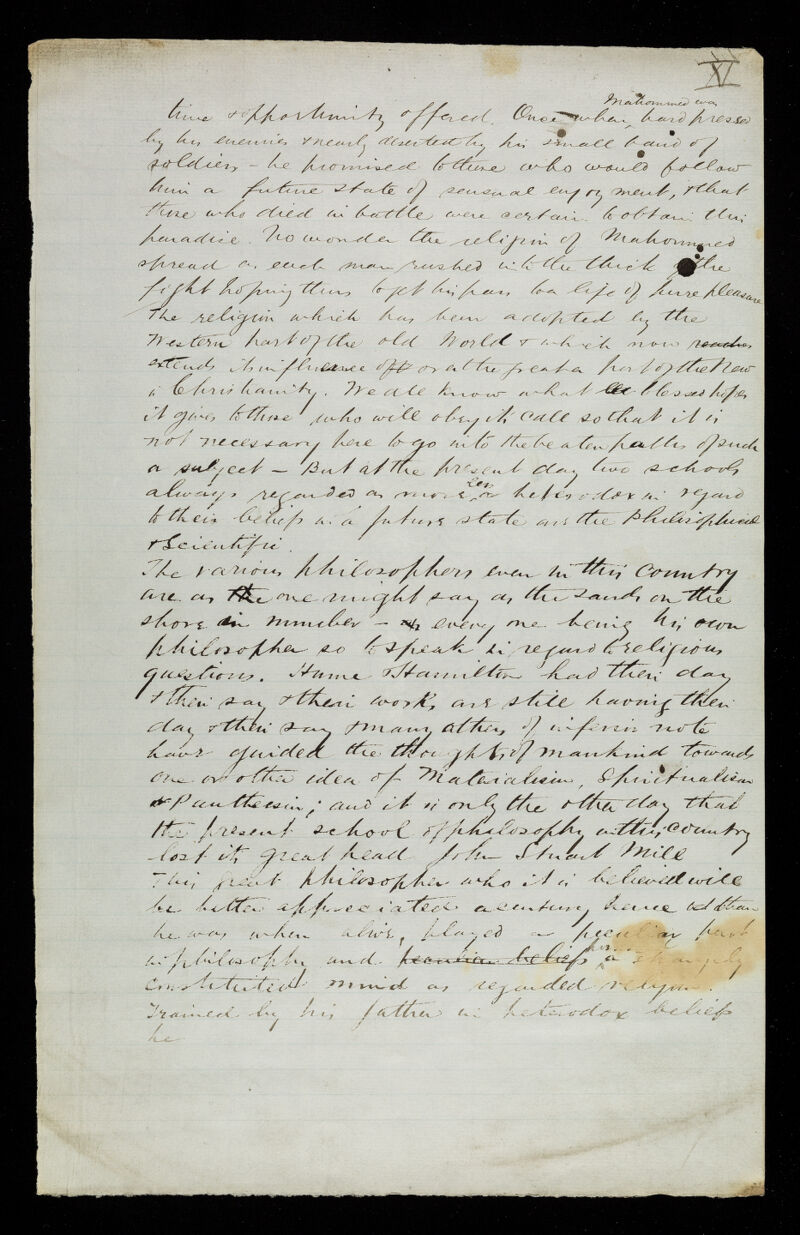 XI
Mahommed was
time & opportunity offered. Once when hard pressed
by his enemies & nearly deserted by his small band of
soldiers – he promised to those who would follow
him a future state of sensual enjoyment, & that
those who died in battle were certain to obtain this
paradise. No wonder the religion of Mahommed
spread as each man rushed into the thick of the
fight hoping thus to get his pass to a life of pure pleasure
The religion which has been adopted by the
Western part of the old World & which now reaches
extends its influence off or a the great a part of the New
is Christianity. We all know what blessed hopes
it gives to those who will obey its call so that it is
not necessary here to go into the beaten paths of such
a subject – But at the present day two schools
less
always regarded as more or heterodox in regard
to their beliefs in a future state are the Philosophical
& Scientific.
The various philosophers even in this country
are as the one might say as the sands on the
shore in number – every one being his own
philosopher so to speak in regard to religious
questions. Hume & Hamilton had their day
& their say & their works are still having their
day & their say & many others of inferior note
have guided the thoughts of mankind towards
one or other idea of Materialism, Spiritualism
& Pantheism; and it is only the other day that
the present school of philosophy in this country
lost its great head John Stuart Mill
This great philosopher who it is believed will
be better appreciated a century hence than
he was when alive, played a peculiar part
in philosophy and peculiar beliefs his a strangely
constituted mind as regarded religion.
Trained by his father in heterodox beliefs
he